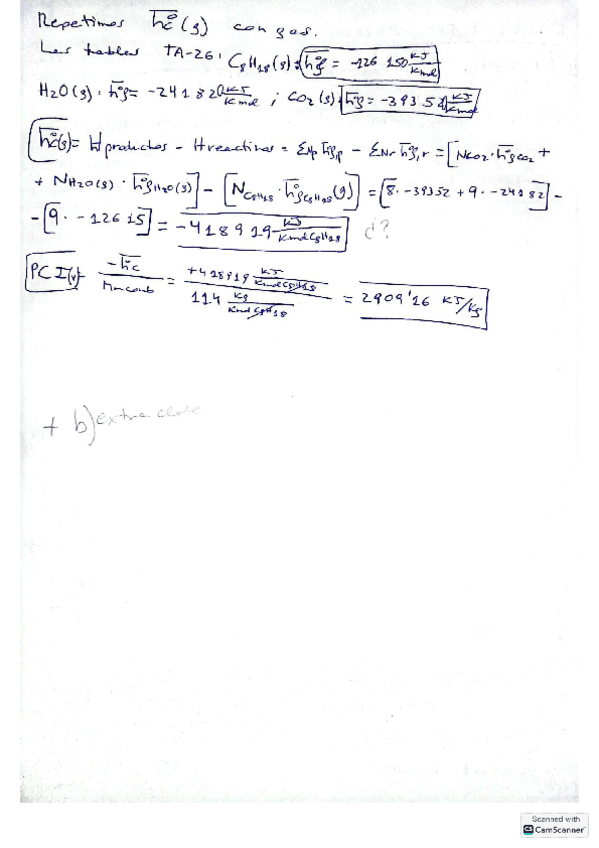 Repetimos h̄c°(g) con gas.
Las tablas TA-26: C8H18(g): h̄f° = -126 150 KJ/Kmol
H2O(g): h̄f° = -241 820 KJ/Kmol ; CO2(g): h̄f° = -393 52 KJ/Kmol
h̄c°(g) = Hproductos - Hreactivos = ΣNp h̄f°,p - ΣNr h̄f°,r = [NCO2 · h̄f°CO2 +
+ NH2O(g) · h̄f°H2O(g)] - [NC8H18 · h̄f°C8H18(g)] = [8 · -39352 + 9 · -24182] -
- [9 · -12615] = -418919 KJ/Kmol C8H18 ¿?
PCI(v) = -h̄c°/Mm comb = +418919 KJ/Kmol C8H18 / 114 Kg/Kmol C8H18 = 2909'16 KJ/Kg
+ b) extra
Scanned with
CS CamScanner